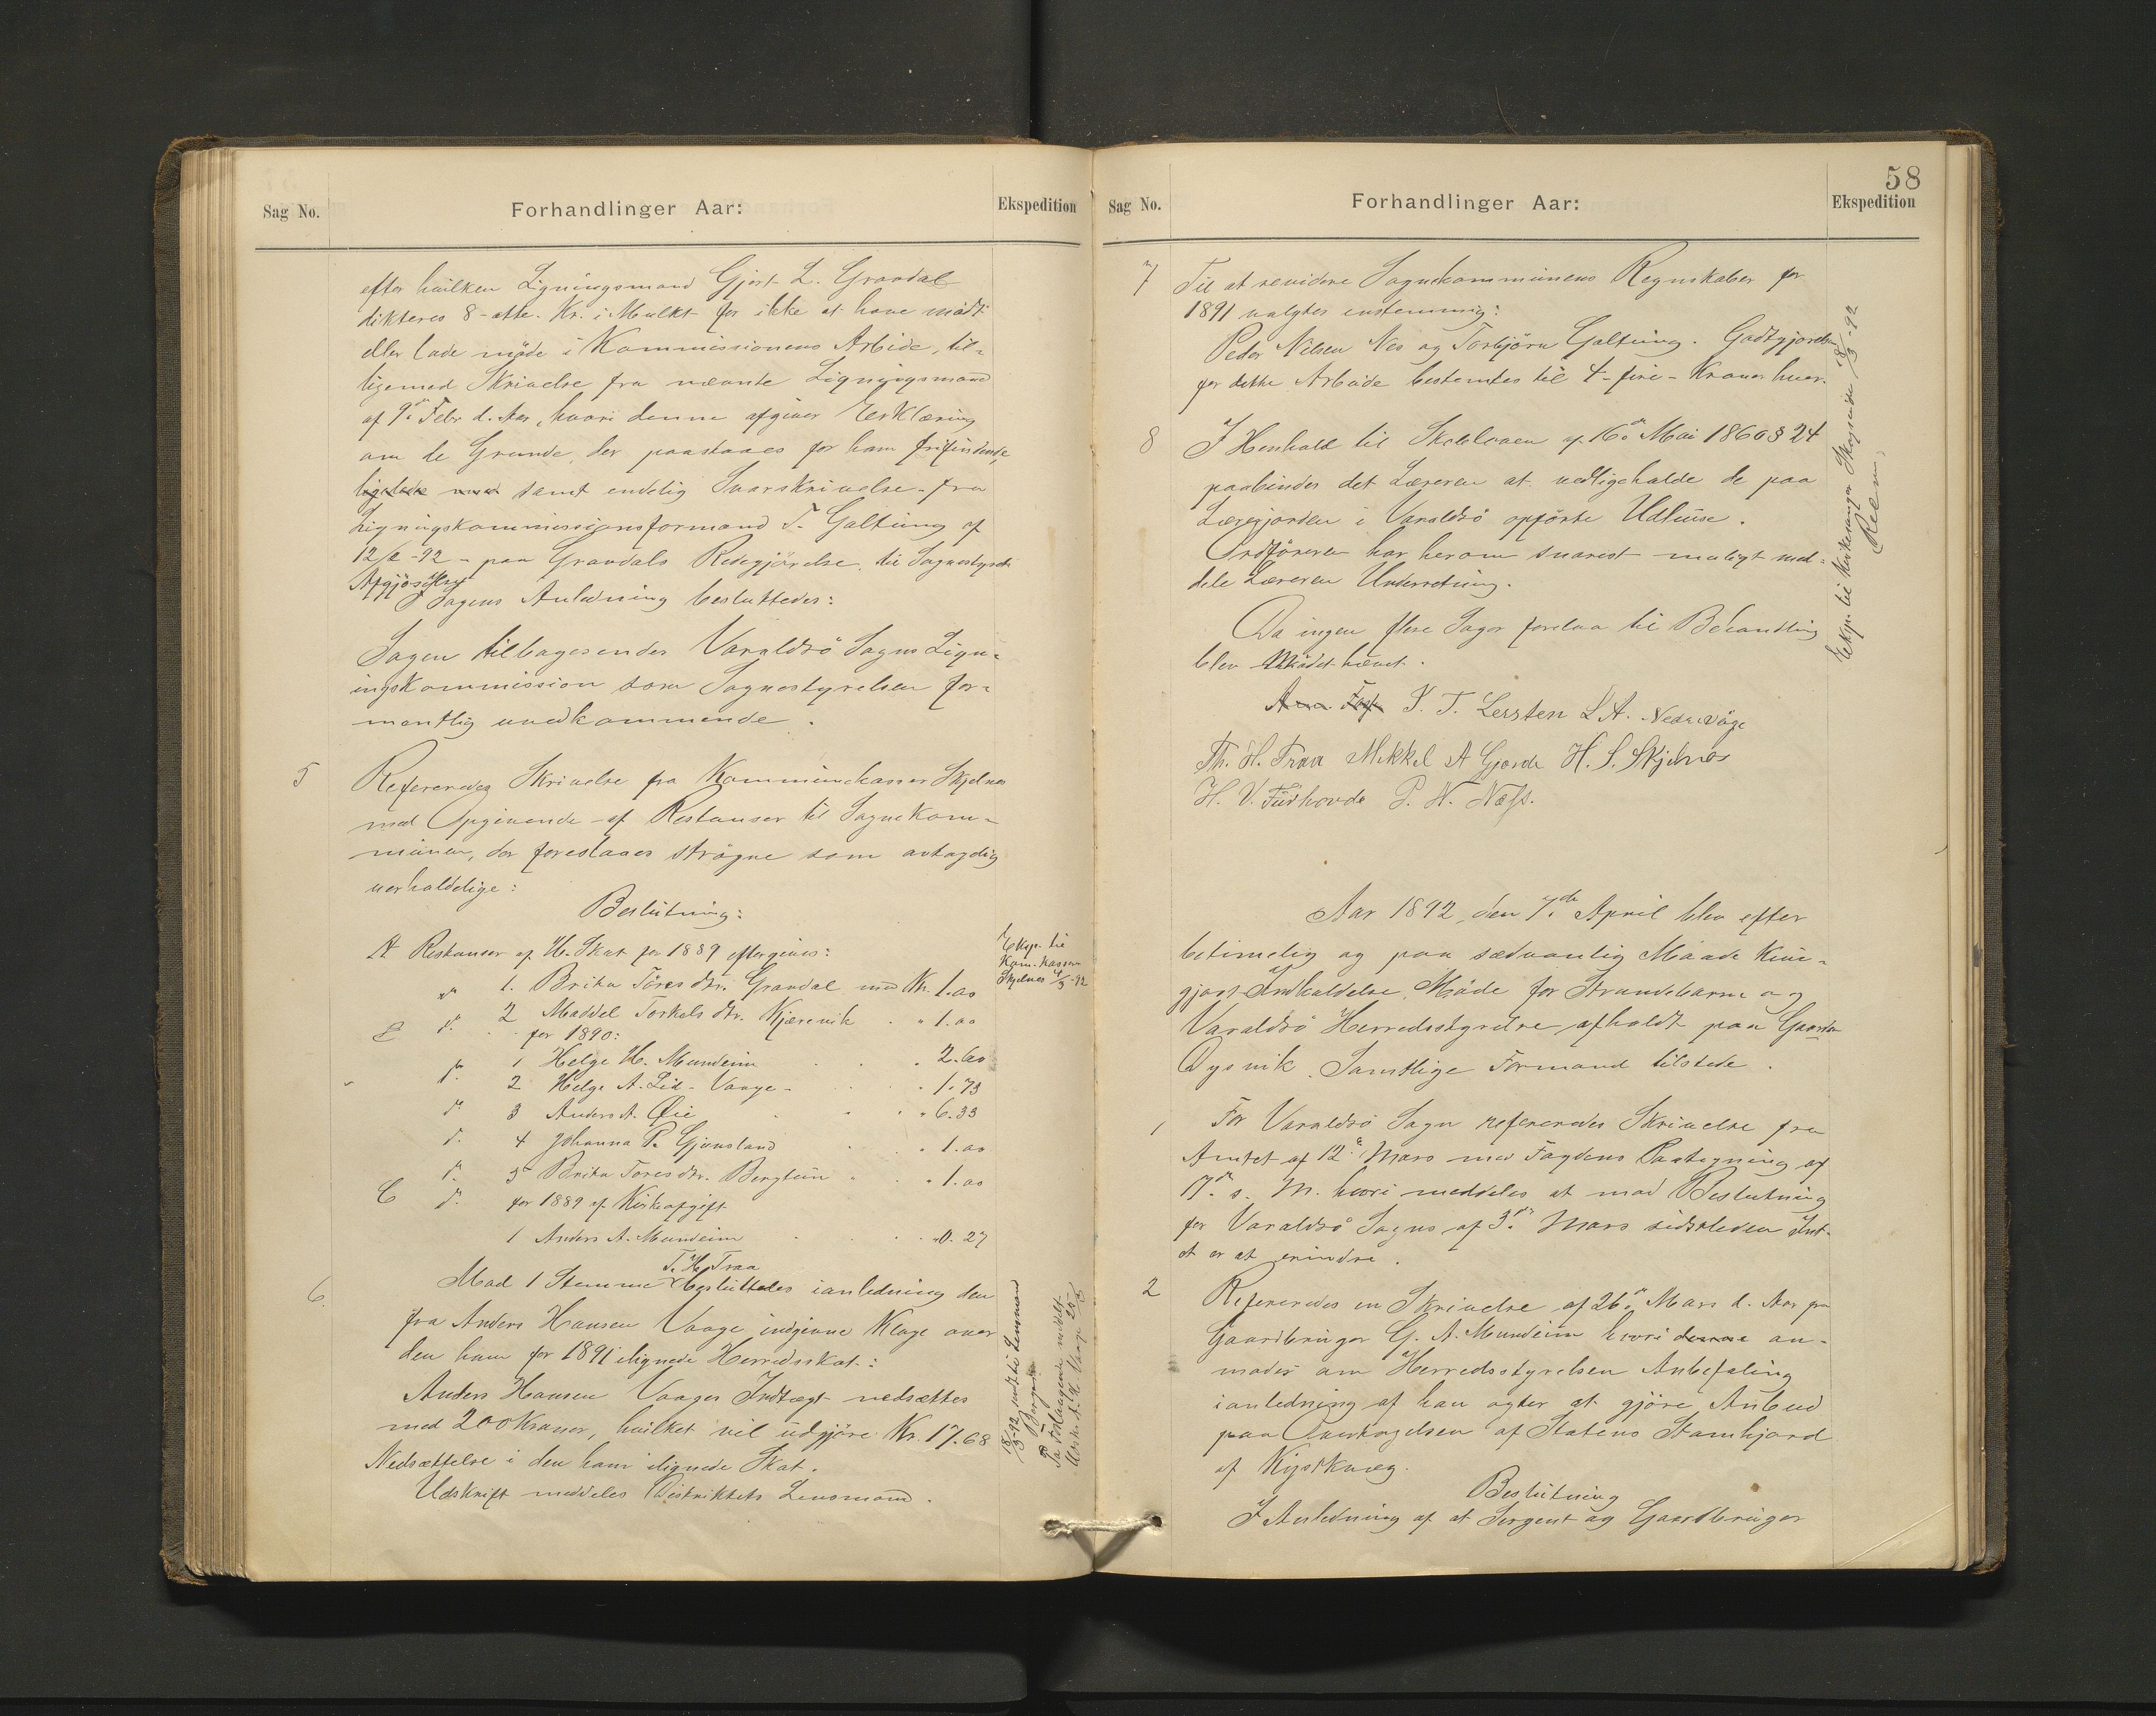 Sag No.
Forhandlinger Aar:
Ekspedition
efter hvilken Ligningsmand Gjert L. Gravdal
dikteres 8-otte. Kr. i Mulkt for ikke at have mödt
eller lade möde i Kommissionens Arbeide, til-
ligemed Skrivelse fra nævnte Ligningsmand
af 9de Febr d. Aar, hvori denne afgiver Erklæring
om de Grunde, der paastaaes for ham frifindende,
ligeledes med samt endelig Svarskrivelse fra
Ligningskommissionsformand T. Galtung af
12/2-92 - paa Gravdals Redegjörelse, til Sognestyrets
Afgjörelse
I Sagens Anledning besluttedes:
Sagen tilbagesendes Varaldsö Sogns Lign-
ingskommission som Sognestyrelsen for-
mentlig uvedkommende.
5 Refereredes Skrivelse fra Kommunekasser Skjelnes
med Opgivende af Restanser til Sognekom-
munen, der foreslaaes strögne som
uerholdelige:
Beslutning:
A Restanser af H. Skat for 1889 eftergives:
1. Brita Töresdtr. Gravdal med Kr. 1.00
2 Maddel Torkelsdtr. Kjærevik " 1.00
B d. for 1890:
1 Helge H. Mundeim " 2.60
2 Helge A. Lid - Vaage - 1.73
3 Anders A. Öie " 6.33
4 Johanna P. Gjönsland " 1.00
5 Brita Toresdtr. Bergtun " 1.00
C d. for 1889 af Kirkeafgift
1 Anders A. Mundeim " 0.27
Eksp. til
Kom.kasser
Skjelnes 4/3-92
T. H. Traa
6. Mod 1 Stemme besluttedes ianledning den
fra Anders Hansen Vaage indgivne Klage over
den ham for 1891 ilignede Herredsskat:
Anders Hansen Vaages Indtægt nedsættes
med 200 Kroner, hvilket vil udgjöre Kr. 17.68
Nedsættelse i den ham ilignede Skat.
Udskrift meddeles Distriktets Lensmand.
18/3-92 sendt til Lensmand
Berge
Paa Forlangende meddelt
Udskr. A. H. Vaage 20/3
58
Sag No.
Forhandlinger Aar:
Ekspedition
7 Til at revidere Sognekommunens Regnskaber for
1891 valgtes enstemmig:
Peder Nilsen Nes og Torbjörn Galtung. Godtgjörelsen
for dette Arbeide bestemtes til 4-fire-Kroner hver.
8 I Henhold til Skoleloven af 16de Mai 1860 § 24
paabindes det Læreren at vedligeholde de paa
Lærerjorden i Varaldsö opförte Udhuse.
Ordföreren har herom snarest muligt med-
dele Læreren Underretning.
Eksp. til Kirkesanger Skogseide 18/3-92
Reen,
Da ingen flere Sager forelaa til Behandling
blev Mödet hævet.
T. T. Lersten L A. Nedrevåge
Th. H. Traa Mikkel A Gjerde H. S. Skjelnes
H. V. Tudhovde P. N. Næss.
Aar 1892, den 7de April blev efter
betimelig og paa sædvanlig Maade kund-
gjort Indkaldelse, Möde for Strandebarm og
Varaldsö Herredsstyrelse afholdt paa Gaarden
Dysvik. Samtlige Formænd tilstede.
1 For Varaldsö Sogn refereredes Skrivelse fra
Amtet af 12te Mars med Fogdens Paategning af
17de s. M. hvori meddeles at mod Beslutning
for Varaldsö Sogns af 3die Mars sidstleden Int-
et er at erindre.
2 Refereredes en Skrivelse af 26de Mars d. Aar fra
Gaardbruger G. A. Mundeim hvori denne an-
moder om Herredsstyrelsen Anbefaling
ianledning af han agter at gjöre Anbud
paa Overtagelsen af Statens Stamhjord
af Kystkvæg.
Beslutning
I Anledning af at Sergent og Gaardbruger